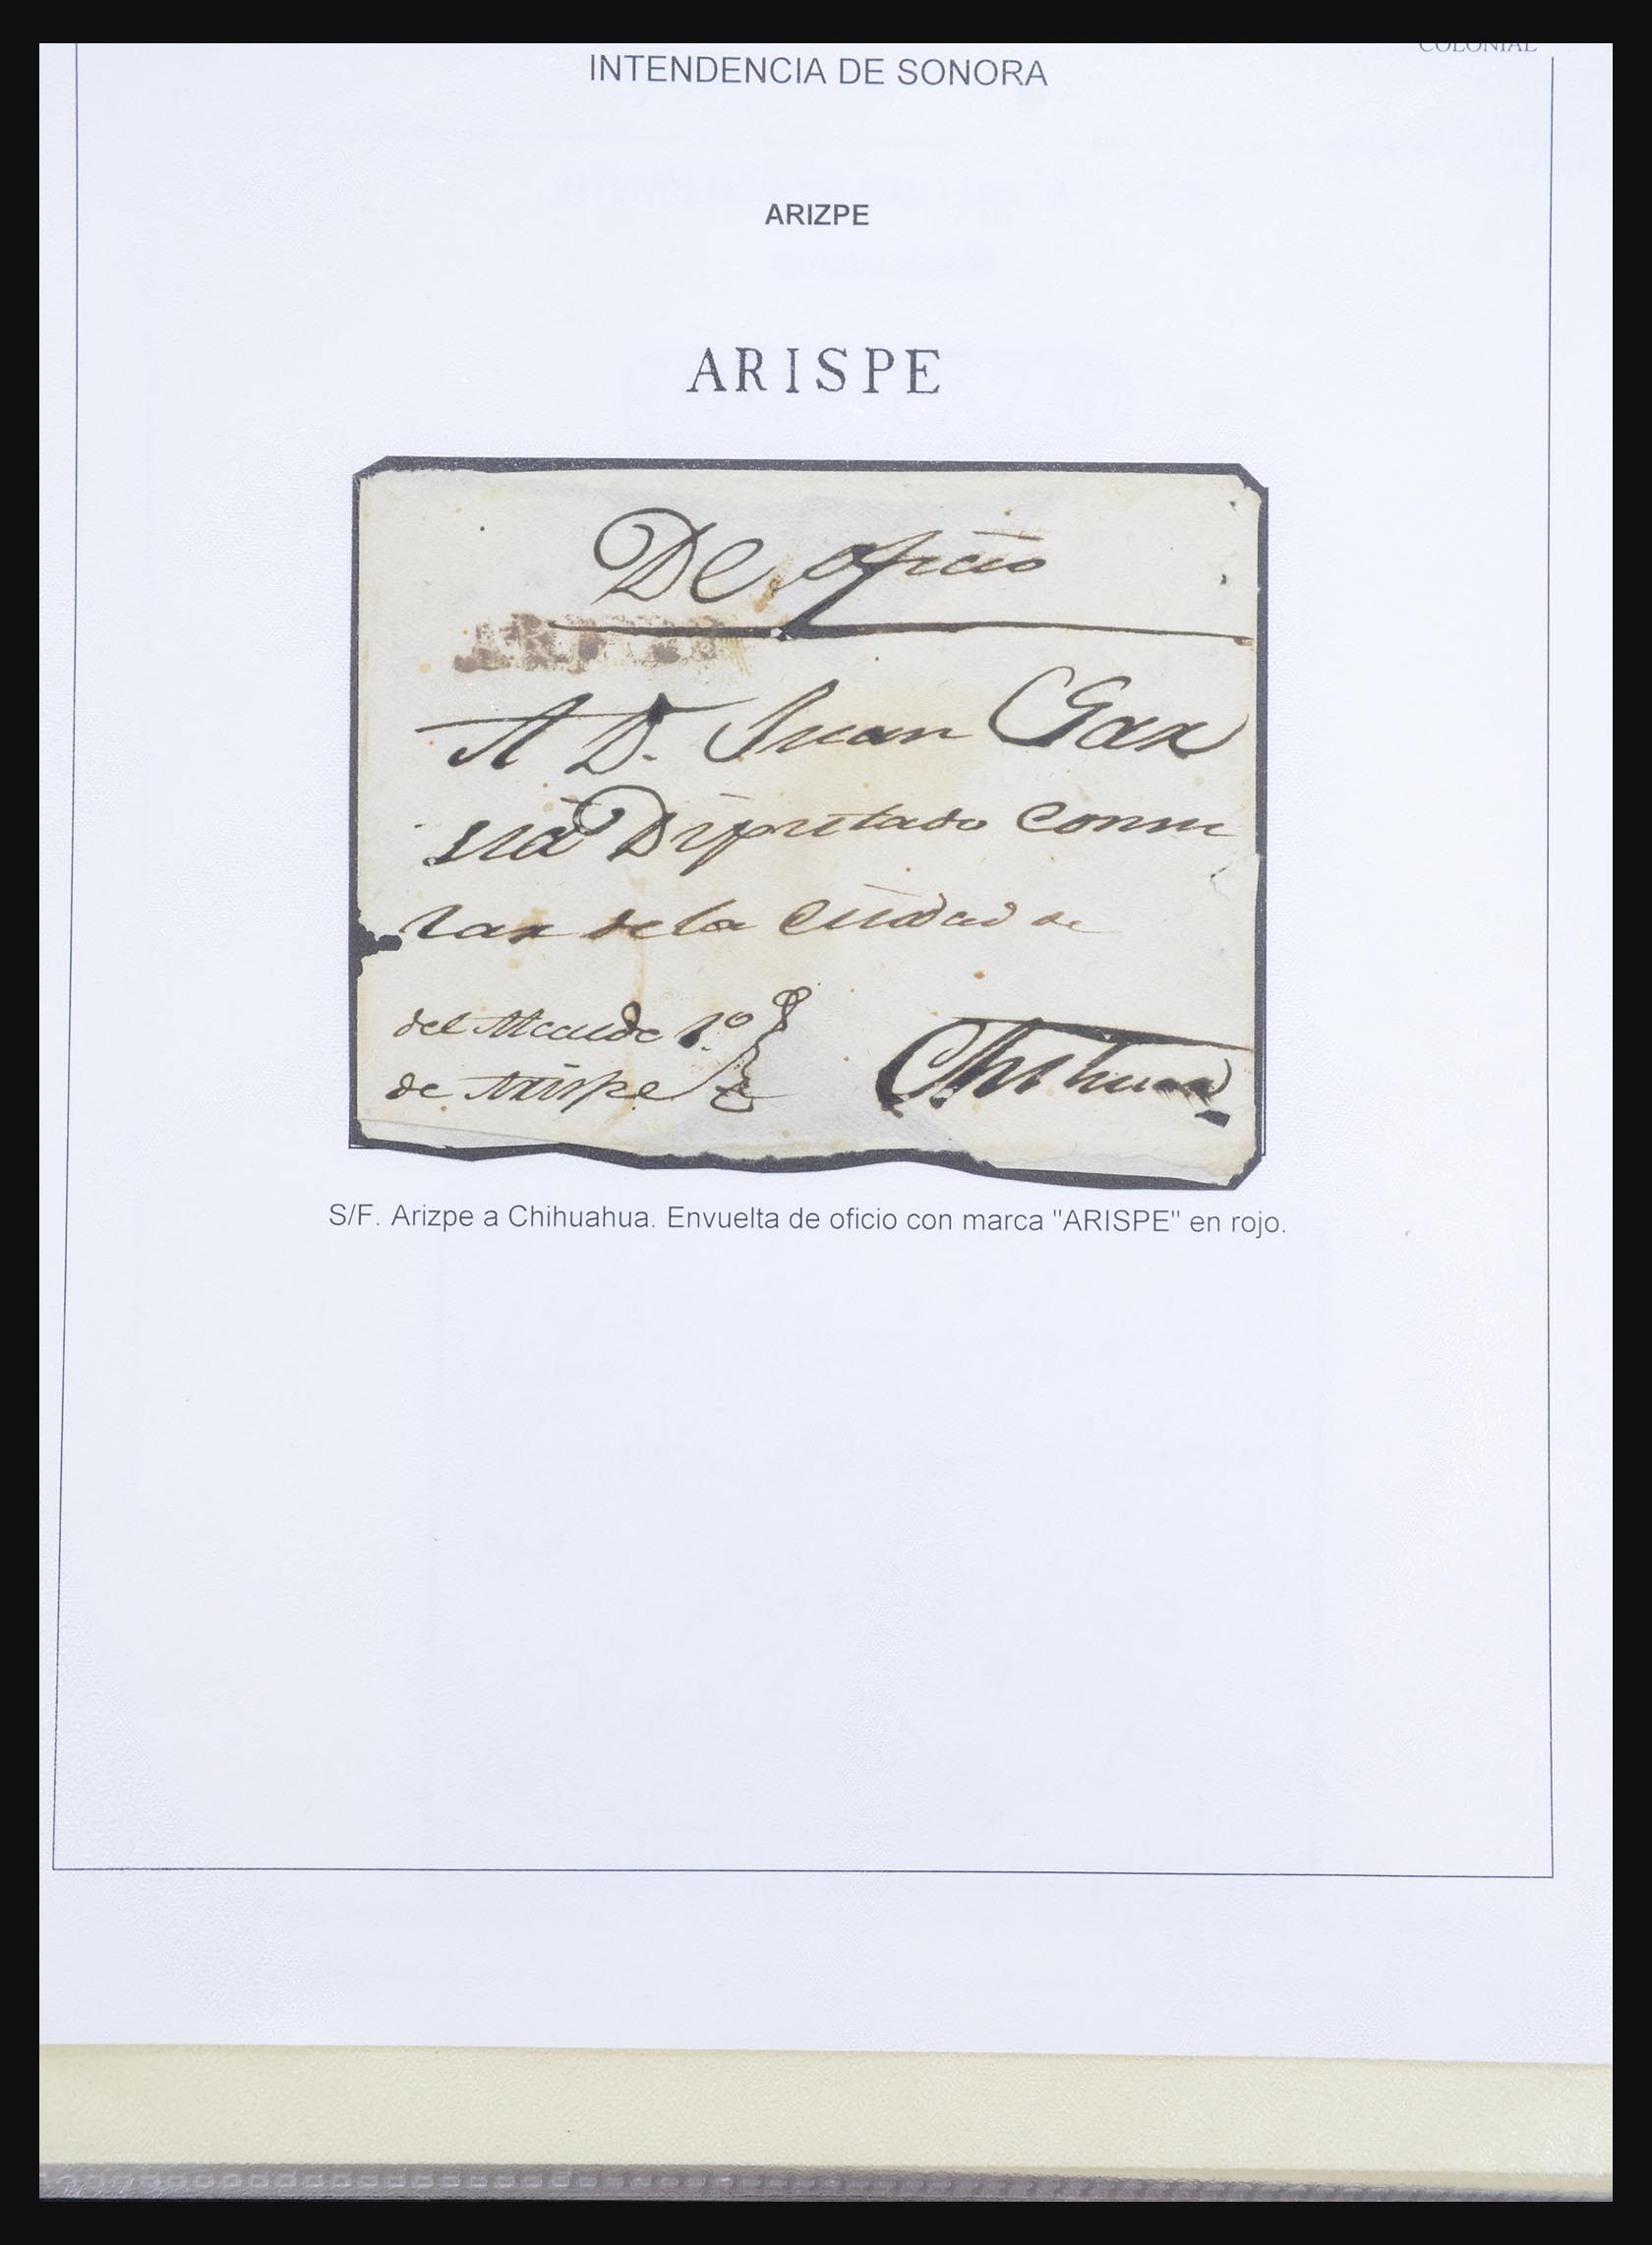 COLONIAL
INTENDENCIA DE SONORA
ARIZPE
ARISPE
De oficio
A D. Juan Gar
sia Diputado Consu
lar de la Ciudad de
del Alcalde 1º
de Arispe
Chihua
S/F. Arizpe a Chihuahua. Envuelta de oficio con marca "ARISPE" en rojo.